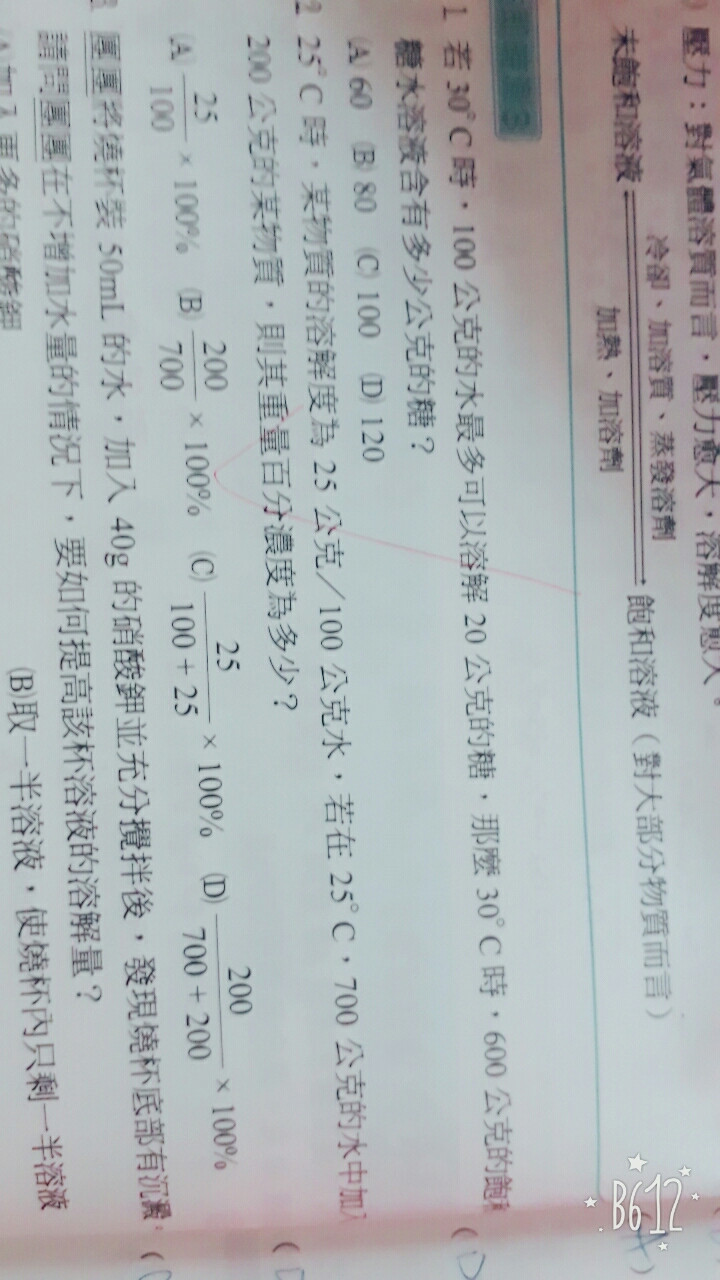 壓力：對氣體溶質而言，壓力愈大，溶解度愈大。
冷卻、加溶質、蒸發溶劑
未飽和溶液 飽和溶液（對大部分物質而言）
加熱、加溶劑
1 若 30°C 時，100 公克的水最多可以溶解 20 公克的糖，那麼 30°C 時，600 公克的飽
糖水溶液含有多少公克的糖？
(A) 60 (B) 80 (C) 100 (D) 120
2 25°C 時，某物質的溶解度為 25 公克／100 公克水，若在 25°C，700 公克的水中加
200 公克的某物質，則其重量百分濃度為多少？
(A) 25/100 × 100% (B) 200/700 × 100% (C) 25/(100 + 25) × 100% (D) 200/(700 + 200) × 100%
團團將燒杯裝 50mL 的水，加入 40g 的硝酸鉀並充分攪拌後，發現燒杯底部有沉澱，
請問團團在不增加水量的情況下，要如何提高該杯溶液的溶解量？
(A)加入更多的硝酸鉀 (B)取一半溶液，使燒杯內只剩一半溶液
(A)
(D
B612